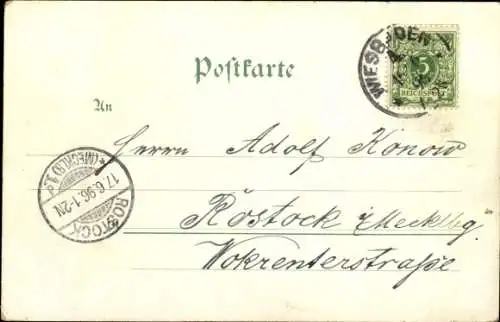 WIESBADEN
5
REICHSPOST
Postkarte
An
Herrn Adolf Konow
Rostock i/Mecklbg.
Wokrenterstraße
ROSTOCK
17.6.96.1-2N
*(MECKLB)1*